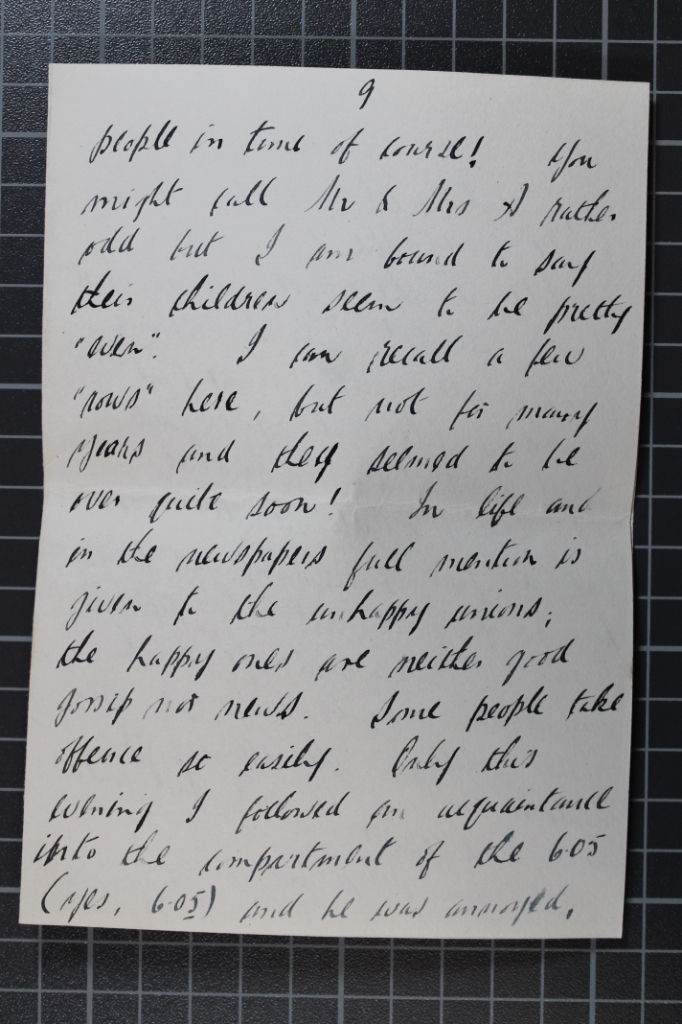 9
people in time of course! You
might call Mr & Mrs A rather
odd but I am bound to say
their children seem to be pretty
"even". I can recall a few
"rows" here, but not for many
years and they seemed to be
over quite soon! In life and
in the newspapers full mention is
given to the unhappy unions;
the happy ones are neither good
gossip nor news. Some people take
offence so easily. Only this
evening I followed an acquaintance
into the compartment of the 6.05
(yes, 6.05) and he was annoyed,